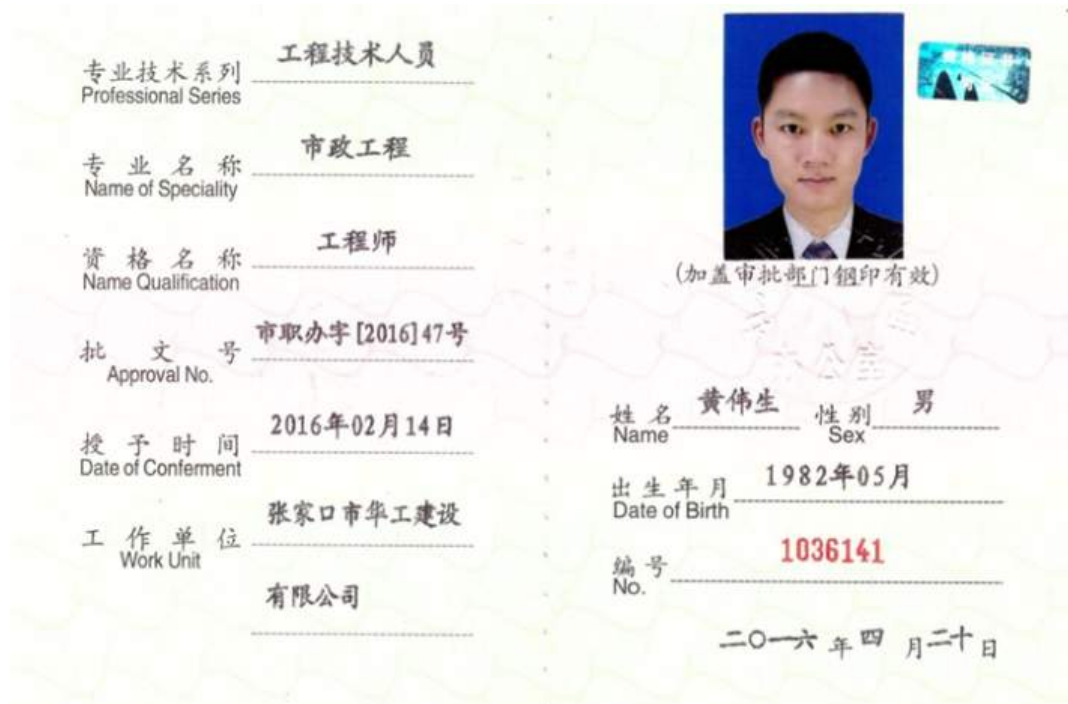 专业技术系列 工程技术人员
Professional Series
专业名称 市政工程
Name of Speciality
资格名称 工程师
Name Qualification
批文号 市职办字[2016]47号
Approval No.
授予时间 2016年02月14日
Date of Conferment
工作单位 张家口市华工建设
Work Unit
有限公司
(加盖审批部门钢印有效)
姓名 黄伟生 性别 男
Name Sex
出生年月 1982年05月
Date of Birth
编号 1036141
No.
二〇一六年四月二十日